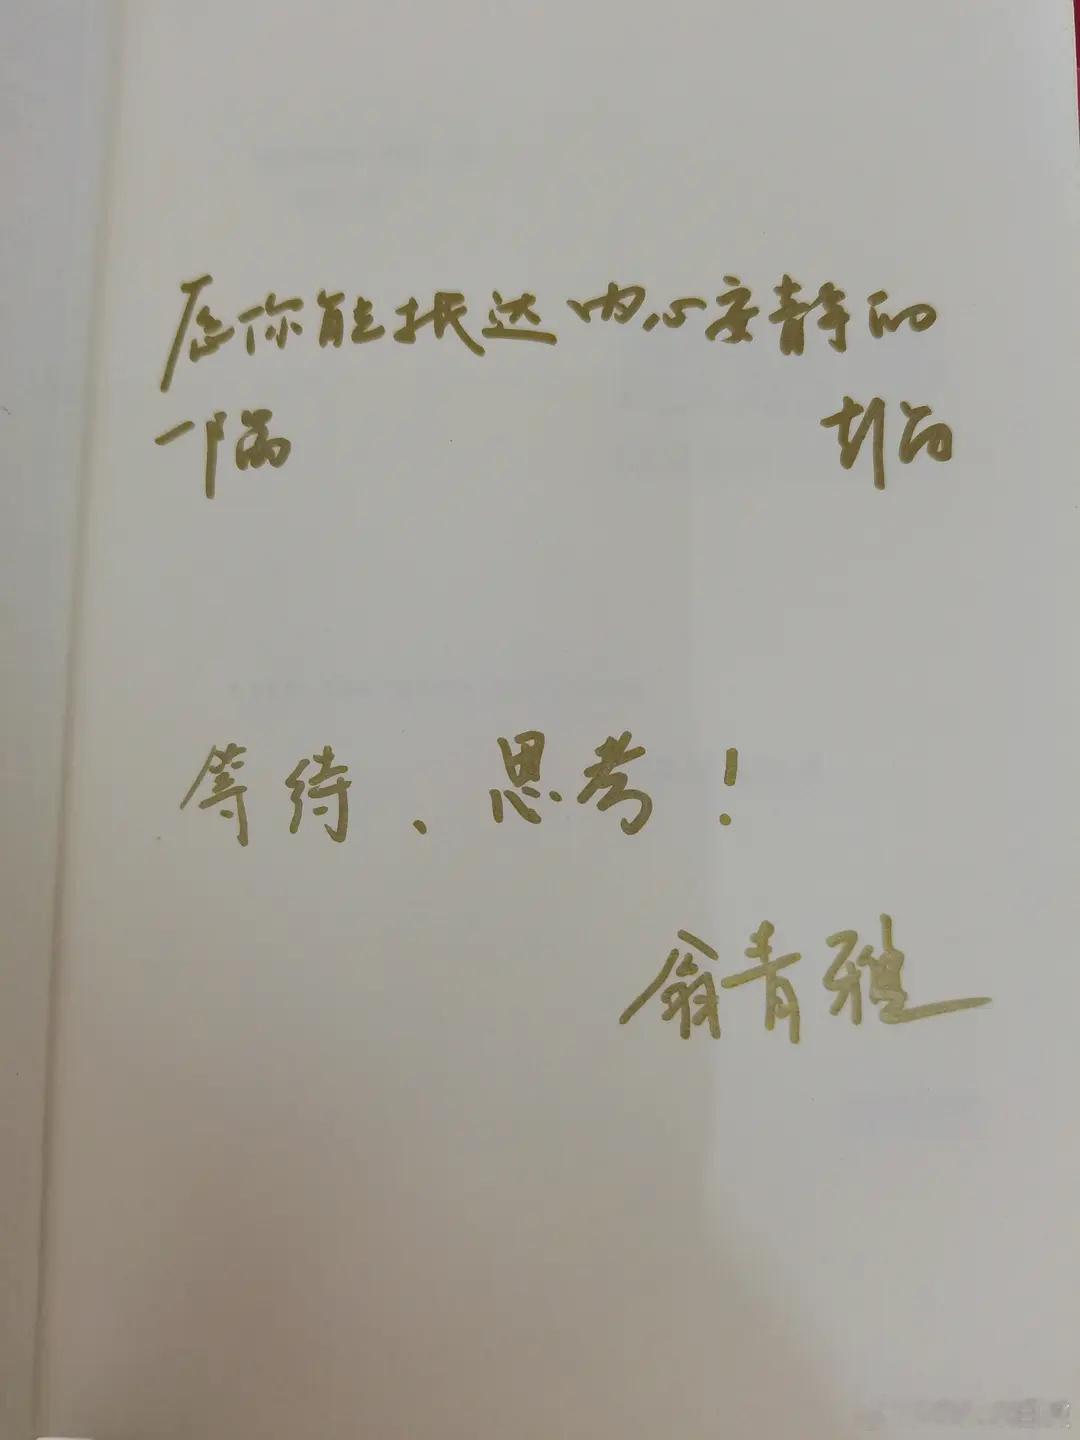 愿你能抵达内心安静的
一隅
等待、思考！
翁青雅